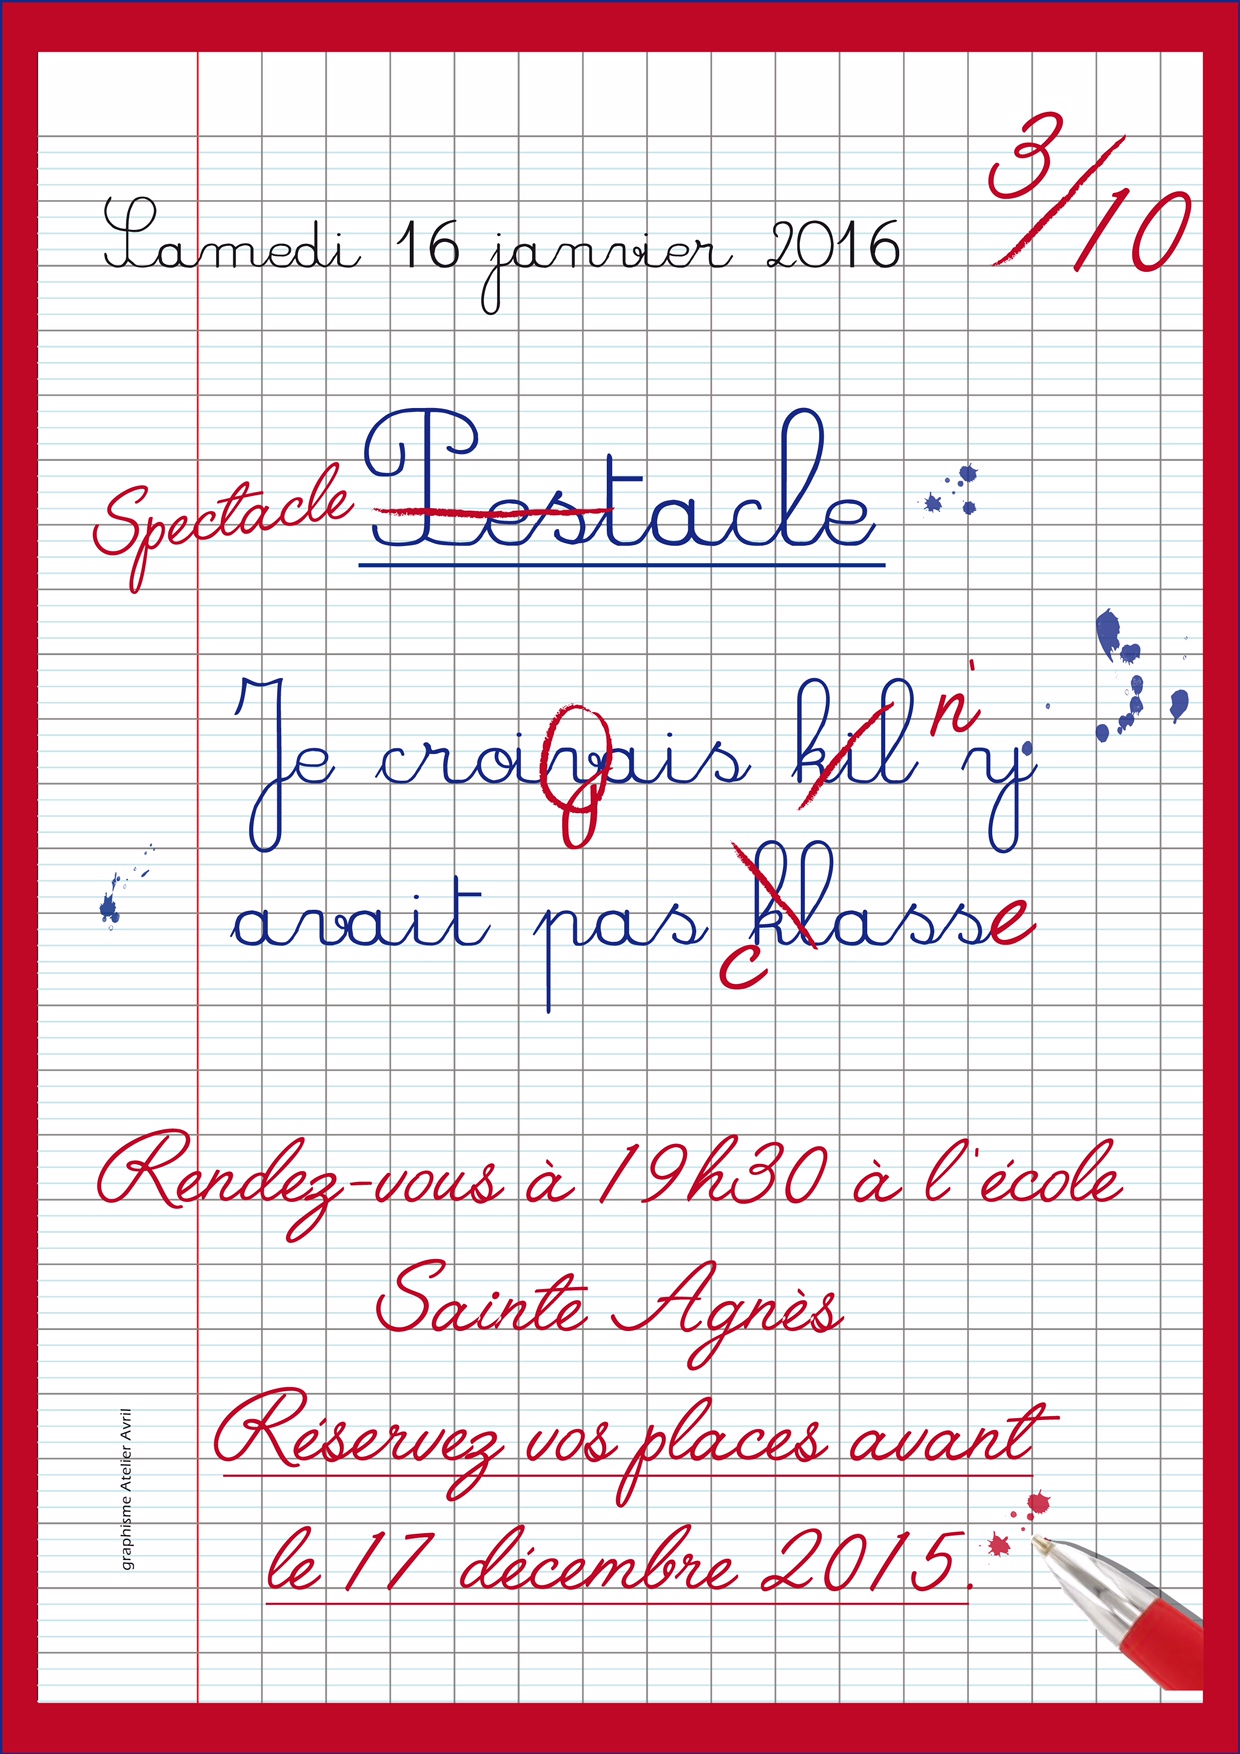 3/10
Samedi 16 janvier 2016
Spectacle Pestacle
Je croivais kil n'y
y
avait pas klasse
c
Rendez-vous à 19h30 à l'école
Sainte Agnès
Réservez vos places avant
le 17 décembre 2015.
graphisme Atelier Avril